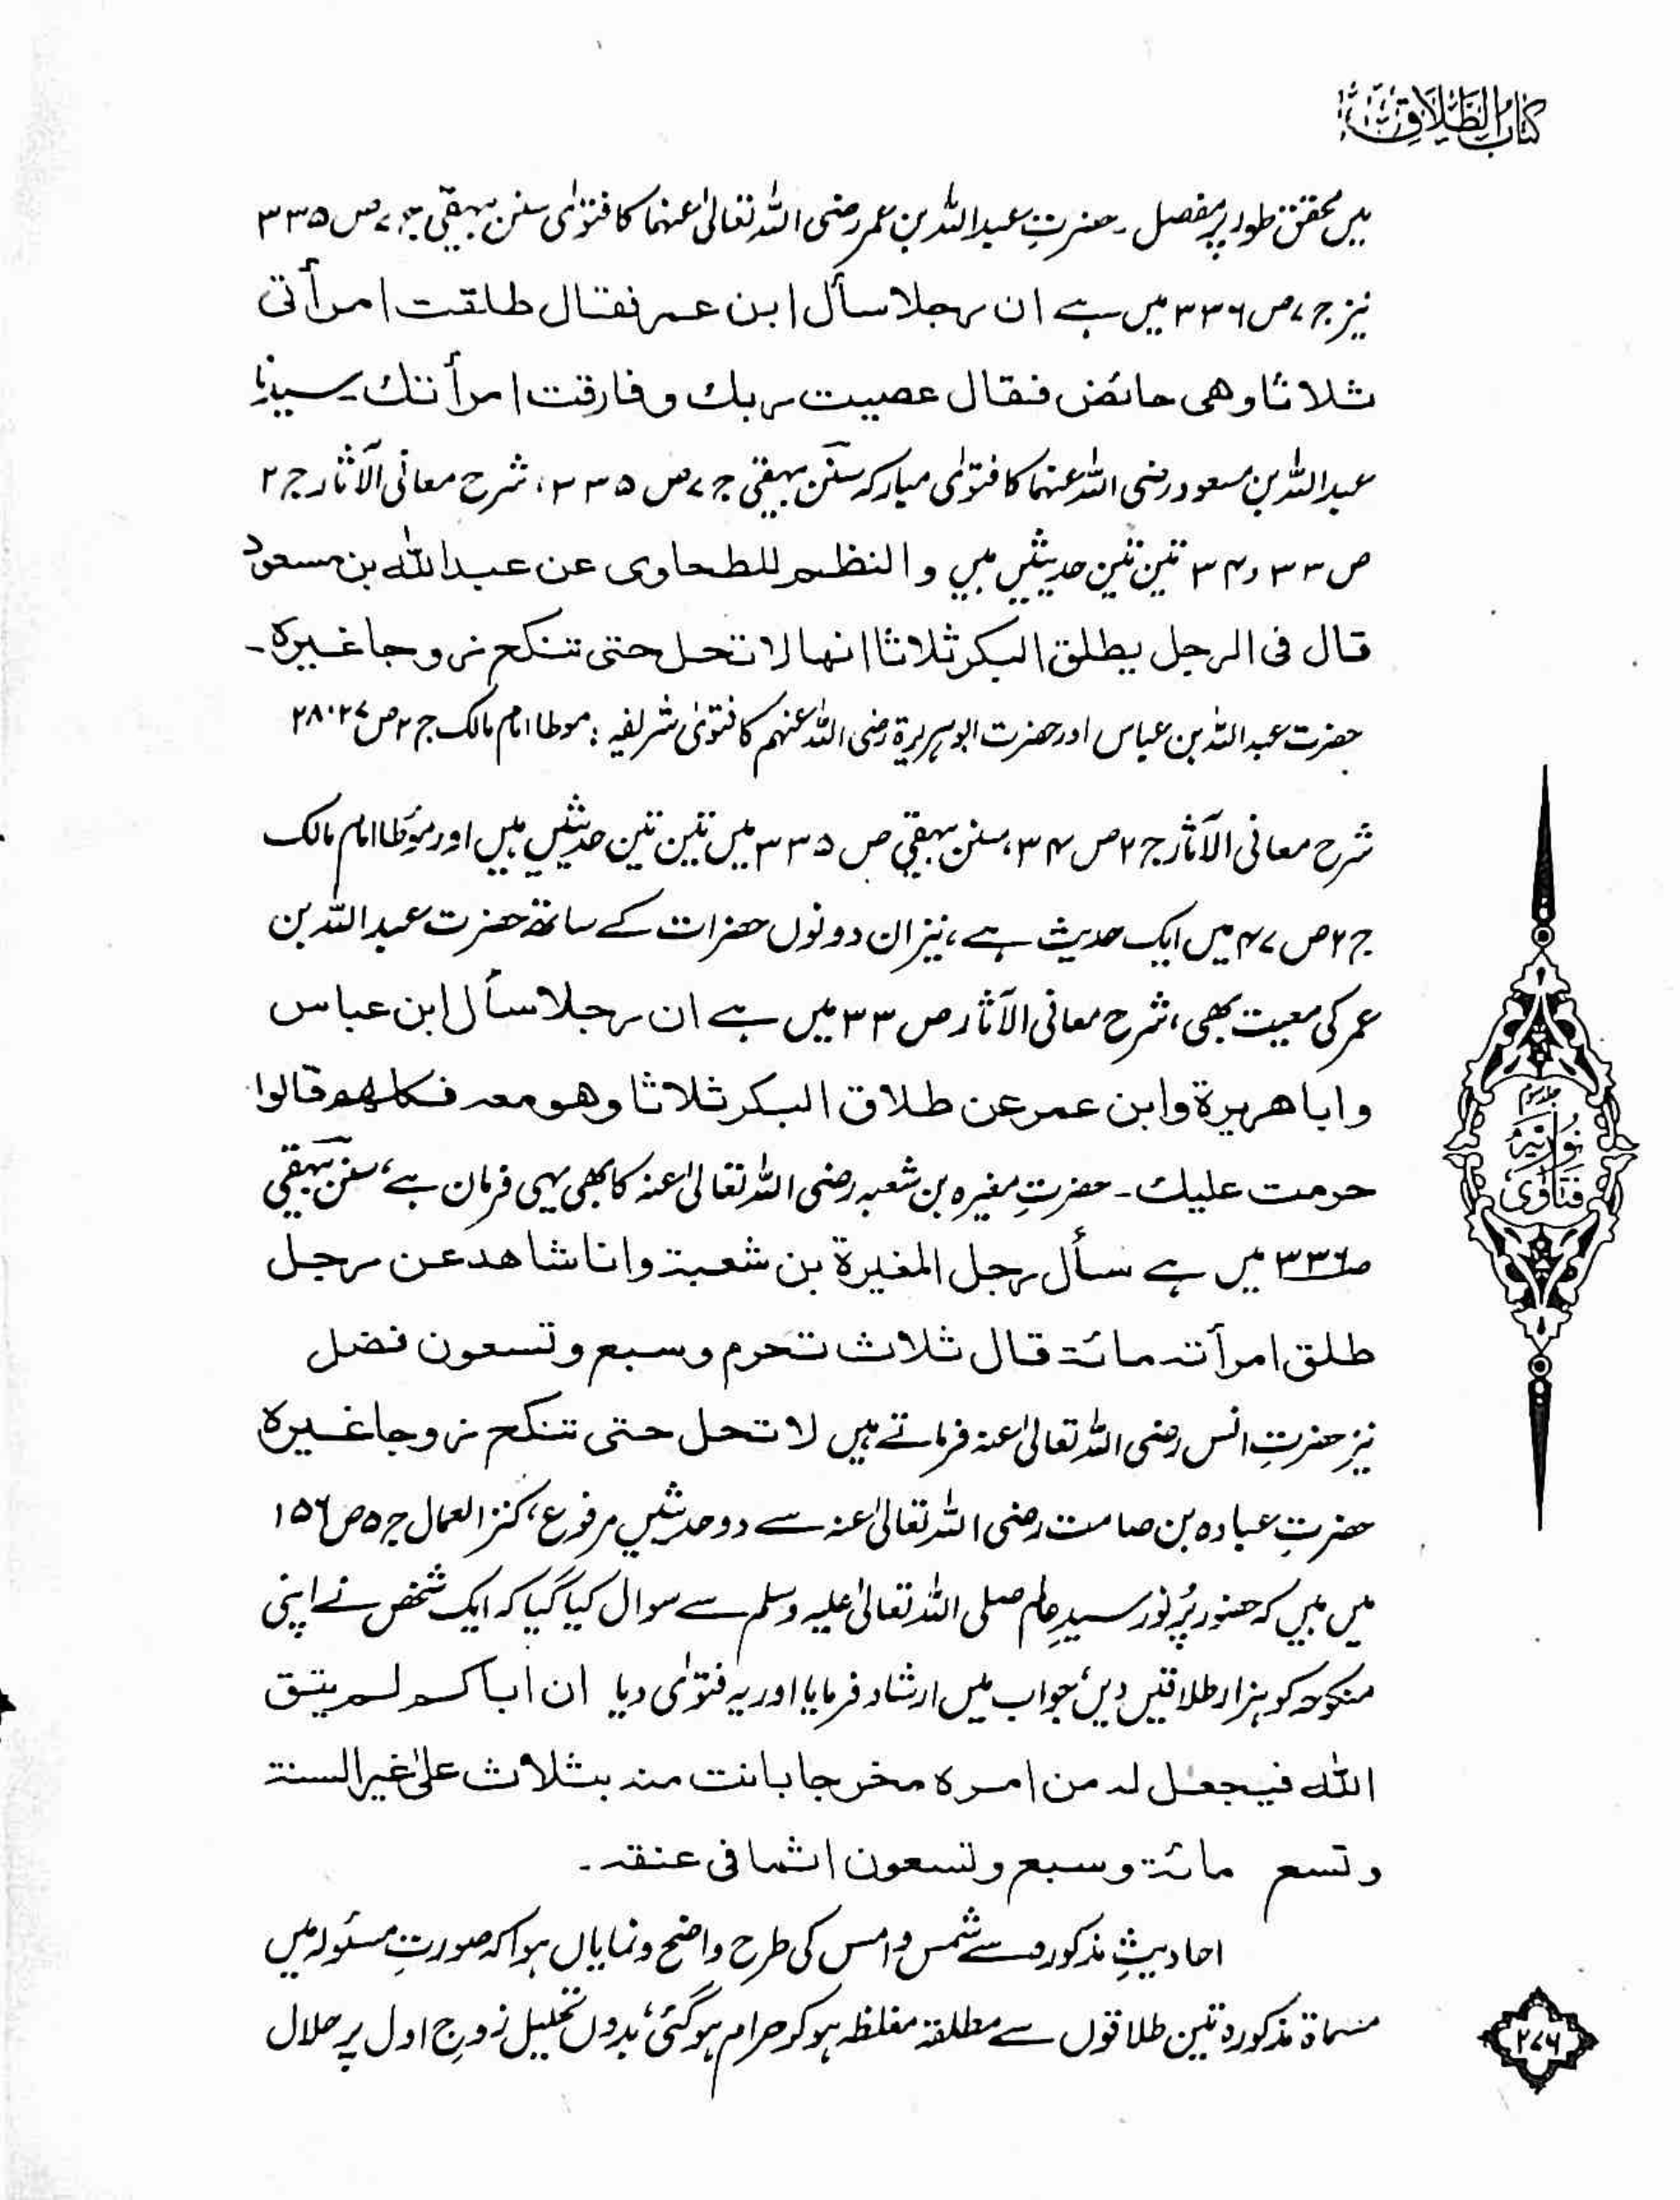 کتاب الطلاق
میں محقق طور پر مفصل۔ حضرتِ عبداللہ بن عمر رضی اللہ تعالیٰ عنہما کا فتوٰی سنن بیہقی ج ۷ ص ۳۳۵
نیز ج ۷ ص ۳۳۶ میں ہے ان رجلا سأل ابن عمر فقال طلقت امرأتی
ثلاثا وهی حائض فقال عصیت ربك وفارقت امرأتك۔ سیدنا
عبداللہ بن مسعود رضی اللہ عنہما کا فتوٰی مبارکہ سنن بیہقی ج ۷ ص ۳۳۵، شرح معانی الآثار ج ۲
ص ۳۳ و ۳۴ تین تین حدیثیں ہیں والنظم للطحاوی عن عبدالله بن مسعود
قال فی الرجل یطلق البکر ثلاثا انها لا تحل حتی تنکح زوجا غیرہ۔
حضرت عبداللہ بن عباس اور حضرت ابوہریرۃ رضی اللہ عنہم کا فتوٰی شریفہ: موطا امام مالک ج ۲ ص ۲۷، ۲۸
شرح معانی الآثار ج ۲ ص ۳۴، سنن بیہقی ص ۳۳۵ میں تین تین حدیثیں ہیں اور مؤطا امام مالک
ج ۲ ص ۴۷ میں ایک حدیث ہے، نیز ان دونوں حضرات کے ساتھ حضرت عبداللہ بن
عمر کی معیت بھی، شرح معانی الآثار ص ۳۳ میں ہے ان رجلا سأل ابن عباس
وابا هریرة وابن عمر عن طلاق البکر ثلاثا وهو معه فکلهم قالوا
حرمت علیك۔ حضرتِ مغیرہ بن شعبہ رضی اللہ تعالیٰ عنہ کا بھی یہی فرمان ہے، سنن بیہقی
ص ۳۳۶ میں ہے سأل رجل المغیرة بن شعبة وانا شاهد عن رجل
طلق امرأته مائة قال ثلاث تحرم وسبع وتسعون فضل
نیز حضرتِ انس رضی اللہ تعالیٰ عنہ فرماتے ہیں لا تحل حتی تنکح زوجا غیرہ
حضرتِ عبادہ بن صامت رضی اللہ تعالیٰ عنہ سے دو حدیثیں مرفوع، کنز العمال ج ۵ ص ۱۵۶
میں ہیں کہ حضور پُرنور سیدِ عالم صلی اللہ تعالیٰ علیہ وسلم سے سوال کیا گیا کہ ایک شخص نے اپنی
منکوحہ کو ہزار طلاقیں دیں، جواب میں ارشاد فرمایا اور یہ فتوٰی دیا ان اباکم لم یتق
الله فیجعل له من امرہ مخرجا بانت منه بثلاث علی غیر السنة
وتسع مائة وسبع وتسعون اثما فی عنقه۔
احادیثِ مذکورہ سے شمس و امس کی طرح واضح و نمایاں ہوا کہ صورتِ مسئولہ میں
مسماۃ مذکورہ تین طلاقوں سے مطلقہ مغلظہ ہو کر حرام ہو گئی، بدوں تحلیل زوجِ اول پر حلال
فتاوٰی
نوریہ
۲۷۶